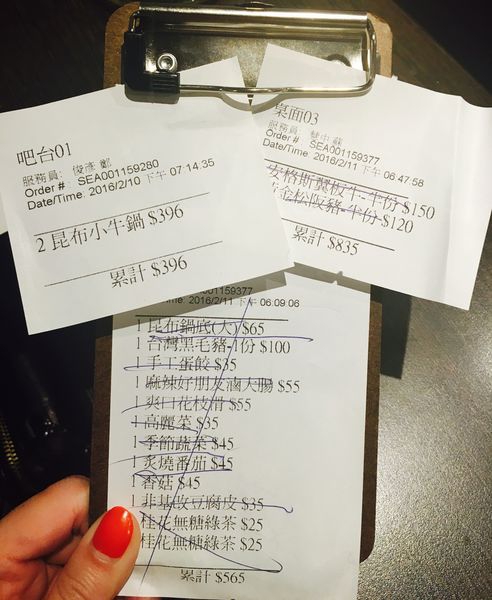 吧台01
服務員: 俊彥 鄭
Order # SEA001159280
Date/Time: 2016/2/10 下午 07:14:35
2 昆布小牛鍋 $396
累計 $396
桌面03
服務員
Order # SEA001159377
Date/Time: 2016/2/11 下午 06:47:58
安格斯翼板牛-半份 $150
黃金松阪豬-半份 $120
累計 $835
001159377
me: 2016/2/11 下午 06:09:06
1 昆布鍋底(大) $65
1 台灣黑毛豬-1份 $100
1 手工蛋餃 $35
1 麻辣好朋友滷大腸 $55
1 爽口花枝滑 $55
1 高麗菜 $35
1 季節蔬菜 $45
1 炙燒番茄 $45
1 香菇 $45
1 非基改豆腐皮 $35
桂花無糖綠茶 $25
桂花無糖綠茶 $25
累計 $565